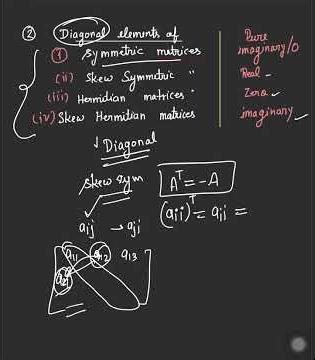 ② Diagonal elements of
① Symmetric matrices
(ii) Skew Symmetric "
(iii) Hermidian matrices "
(iv) Skew Hermidian matrices
Pure
imaginary/0
Real -
Zero
imaginary
↓ Diagonal
Skew sym
Aᵀ = -A
aij → aji
(aii)ᵀ = aii =
a11 a12 a13
a21